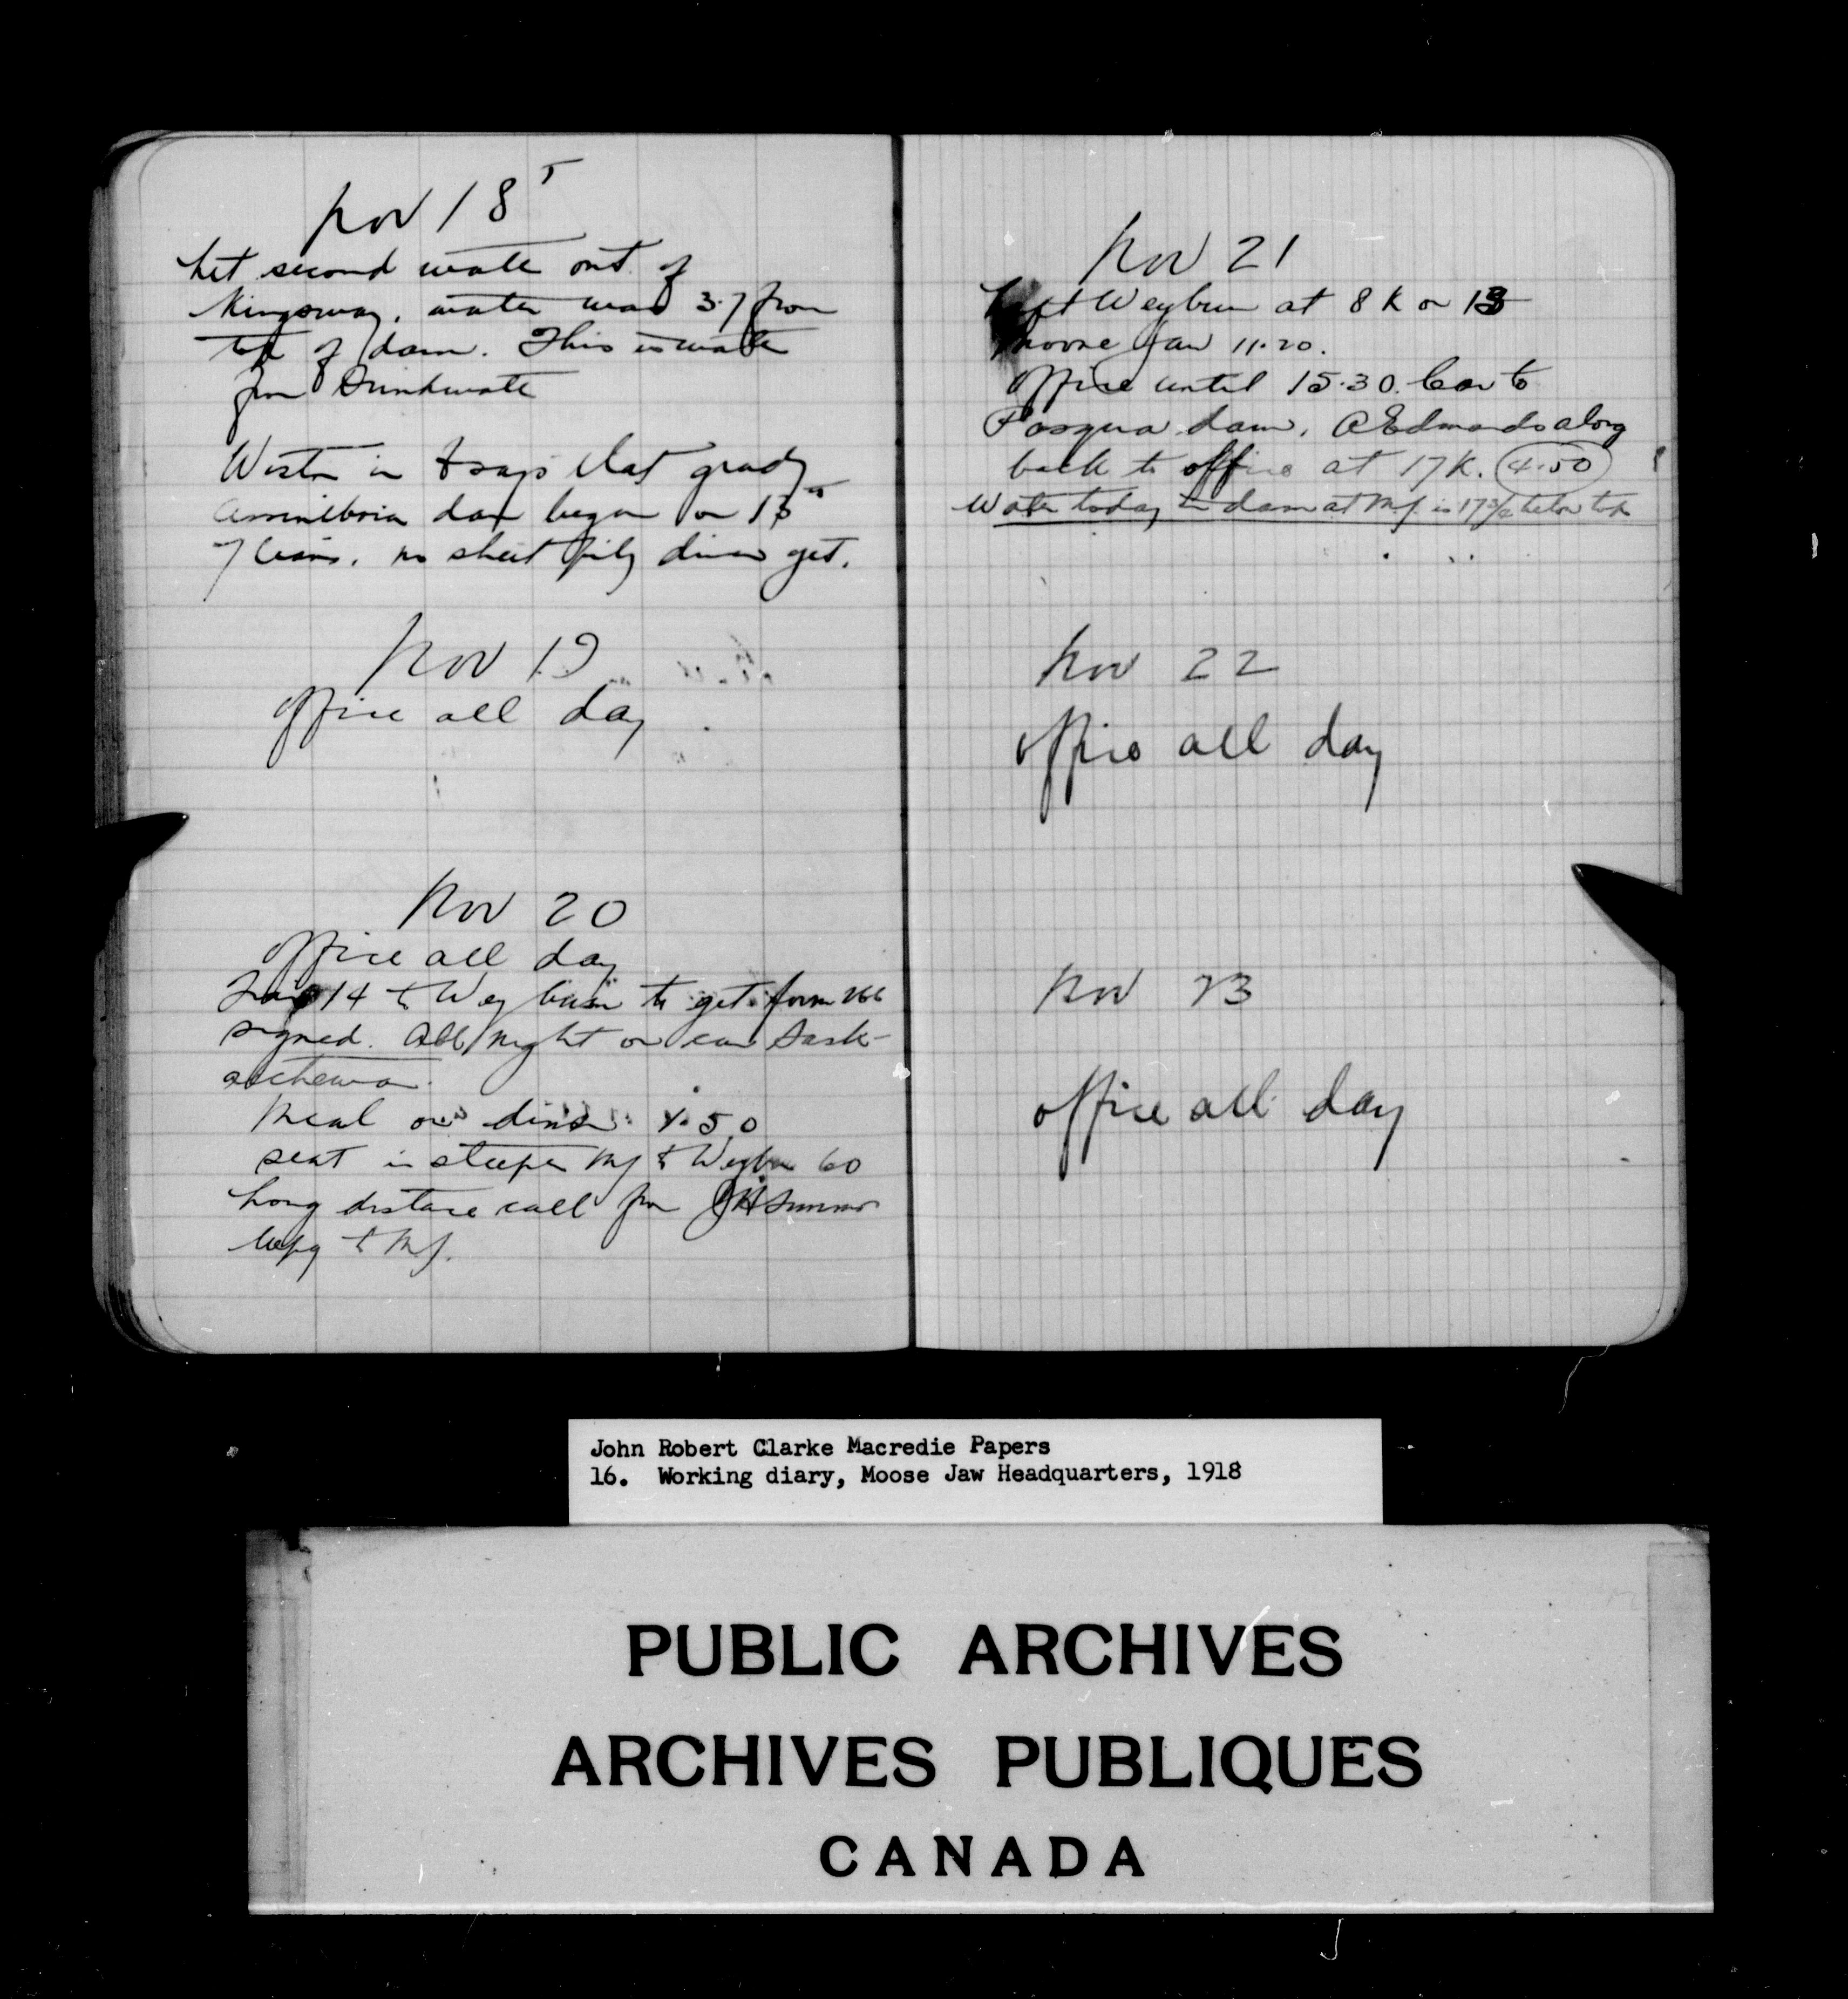 Nov 18
Let second water out of
Kingsway, water was 3.7 from
top of dam. This is water
from Drinkwater
in & says that grady
Assiniboia dam began on 15
7 teams. no sheet pilg driven yet.
Nov 19
office all day
Nov 20
office all day
14 to Weyburn to get form 
signed. All night on car Sask-
atchewan.
Meal on diner
seat in sleeper MJ to Weybn 60
Long distance call from
Wpg to MJ.
Nov 21
Left Weyburn at 8 K on 13
Moose Jaw 11.20.
office until 15.30. Car to
Pasqua dam, A Edmonds along
back to office at 17 K. 4.50
Water today in dam at MJ is 17 3/4 below top
Nov 22
office all day
Nov 23
office all day
John Robert Clarke Macredie Papers
16. Working diary, Moose Jaw Headquarters, 1918
PUBLIC ARCHIVES
ARCHIVES PUBLIQUES
CANADA